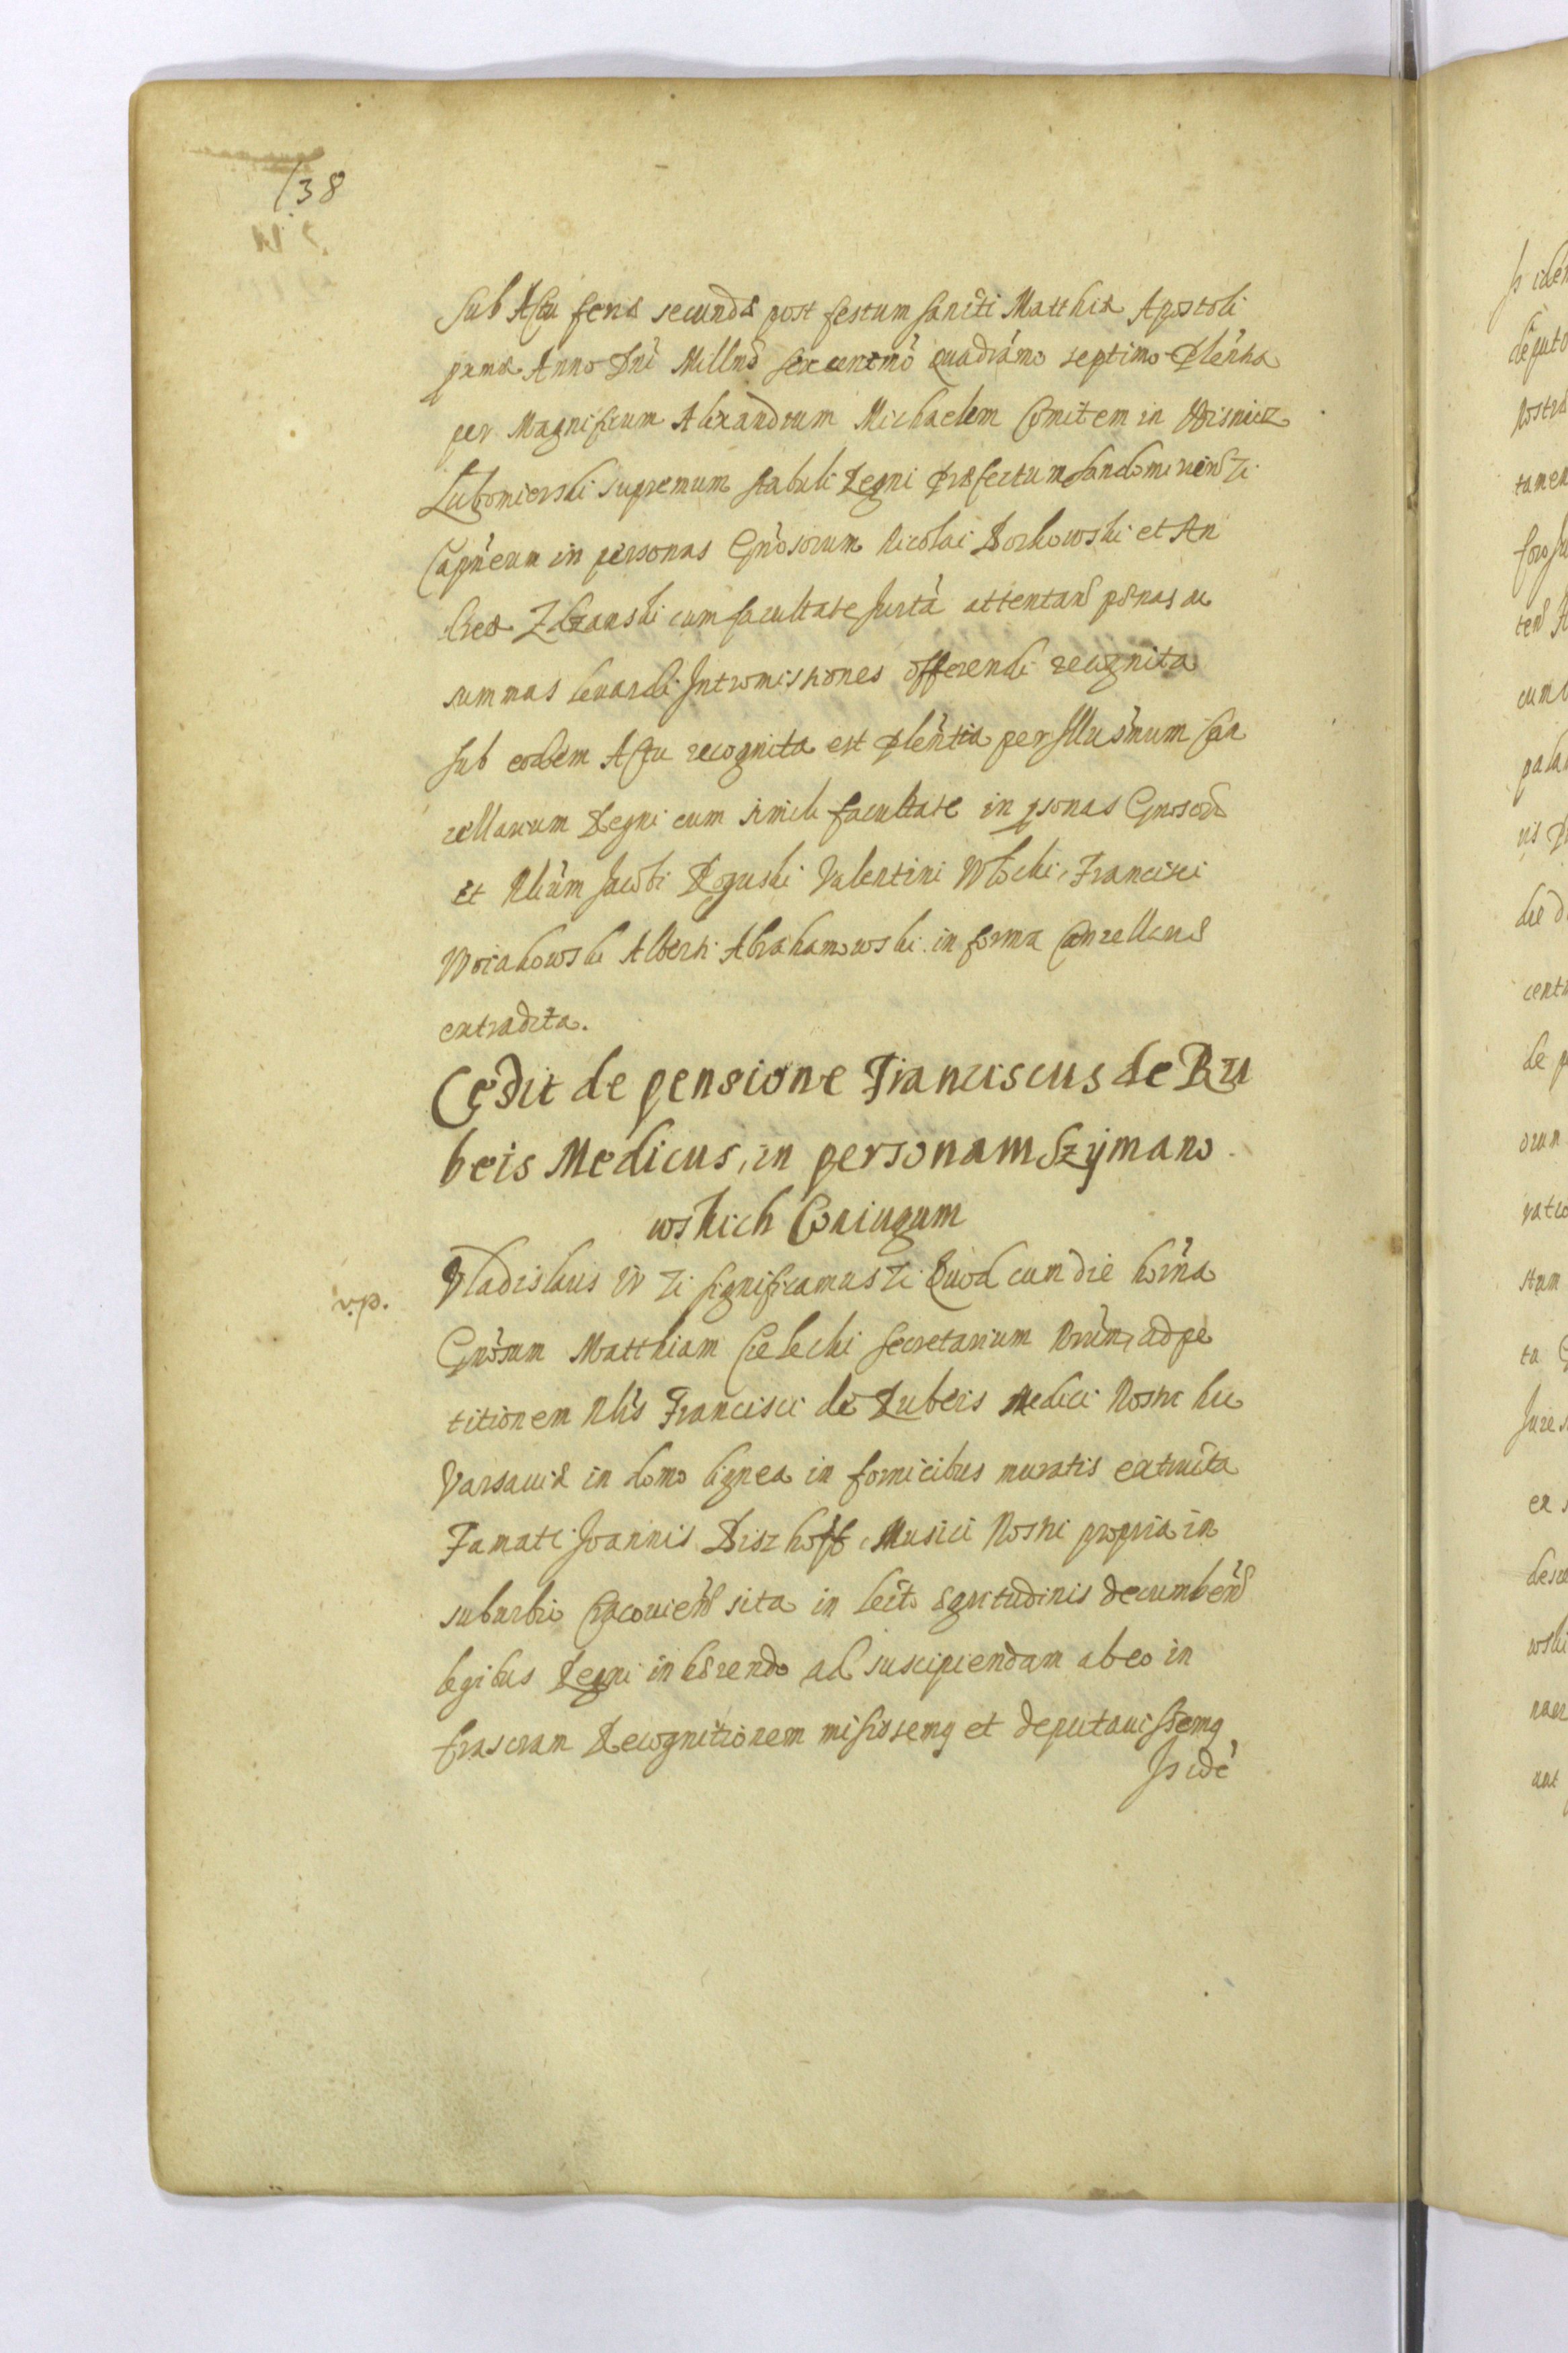 138
Sub Actu feria secunda post festum Sancti Matthiæ Apostoli
pxma Anno Dni Millmo sexcentmo quadrämo septimo Plentia
per Magnificum Alexandrum Michaelem Comitem in Wisnicz
Lubomierski supremum stabuli Regni Præfectum Sandomirien Ze
Capneum in personas Gnosorum Nicolai Borkowski et An
dreæ cum facultate Juxta attentan pænas ac
summas levandi Intromissiones offerendi recognita
Sub eodem Actu recognita est Plentia per Illusmum Can
cellarium Regni cum simili facultate in psonas Gnosorum
et Nlium Jacobi Roguski Valentini Wlocki, Francisci
Alberti Abrahamowski in forma Cancellariæ
extradita.
Cedit de pensione Franciscus de Ru
beis Medicus, in personam Szymano
wskich Coniugum
v.p.
Vladislaus IV Ze significamus Ze Quod cum die hörna
Gnosum Matthiam Cielecki Secretarium Nrum, ad pe
titionem Nlis Francisci de Rubeis Medici Nostri hic
Varsaviæ in domo lignea in fornicibus muratis extructa
Famati Joannis Biszhoff Musici Nostri propria in
suburbio Cracovien sita in lecto ægritudinis decumben
legibus Regni inhærendo ad suscipiendam ab eo in
frascram Recognitionem misissemq et deputavissemq
Is ide